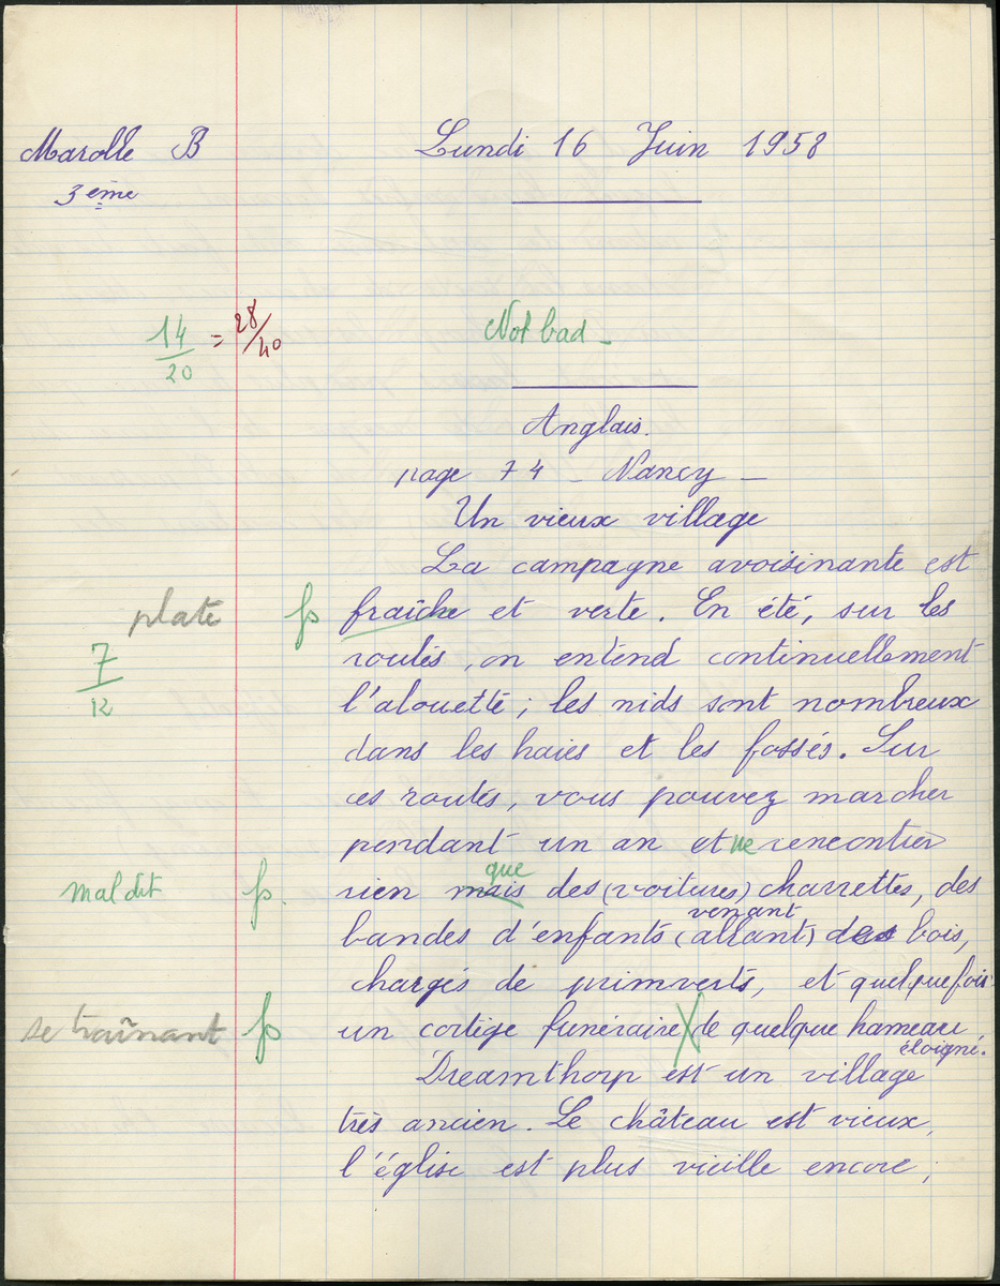 Marolle B Lundi 16 Juin 1958
3ème
14/20 = 28/40 Not bad -
Anglais.
page 74 - Nancy -
Un vieux village
La campagne avoisinante est
plate fs fraîche et verte. En été, sur les
7/12 routes, on entend continuellement
l'alouette ; les nids sont nombreux
dans les haies et les fossés. Sur
ces routes, vous pouvez marcher
pendant un an et ne rencontrer
que
mal dit fs. rien mais des (voitures) charrettes, des
venant
bandes d'enfants (allant) des bois,
chargés de primverts, et quelquefois
se traînant fs un cortège funéraire X de quelque hameau
éloigné.
Dreamthorp est un village
très ancien. Le château est vieux,
l'église est plus vieille encore ;